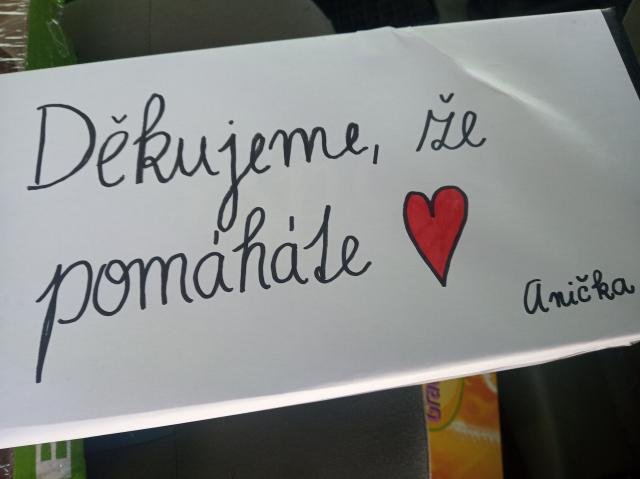 Děkujeme, že
pomáháte
Anička